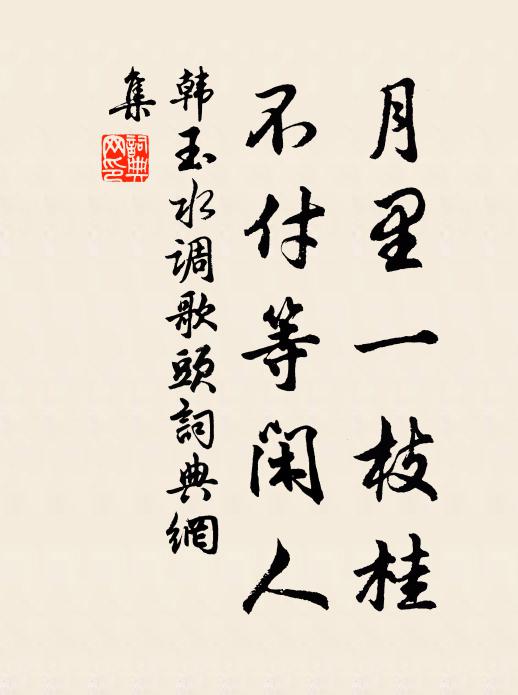 月里一枝桂
不付等闲人
韩玉水调歌頭詞典網
集
詞典網印